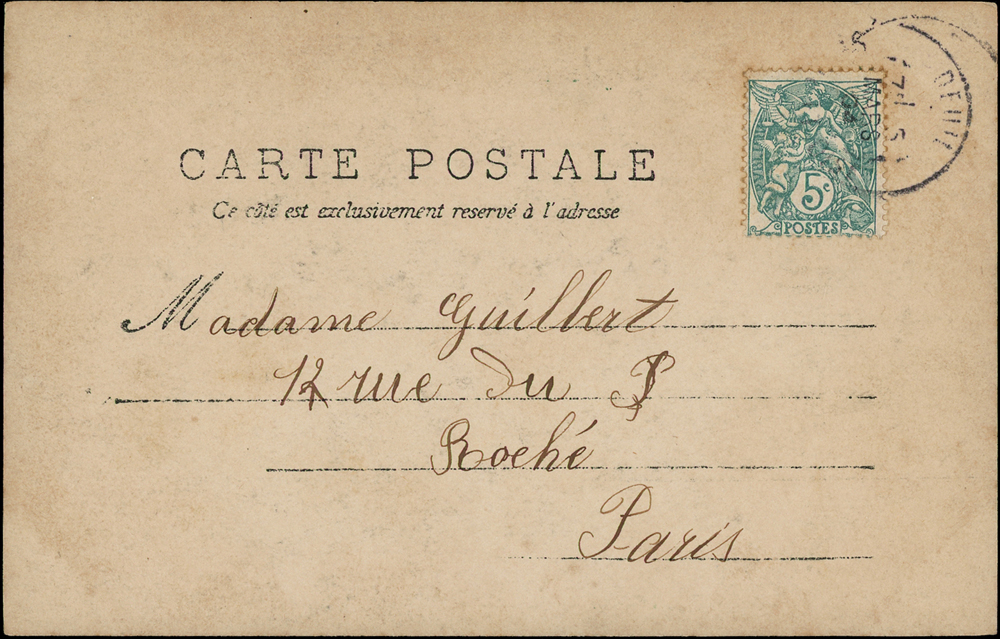 CARTE POSTALE
Ce côté est exclusivement reservé à l'adresse
5c
POSTES
MARS
Madame Guilbert
12 rue du P
Roché
Paris